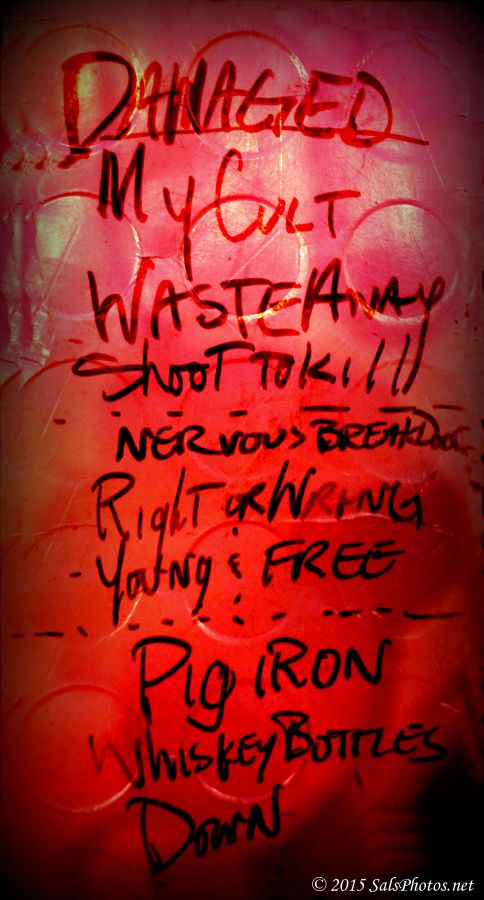 DAMAGED
My CULT
WASTE AWAY
SHOOT TO KILL
NERVOUS BREAKDOWN
RighT or WRONG
Young & FREE
Pig IRON
WHISKEY BOTTLES
DOWN
© 2015 SalsPhotos.net